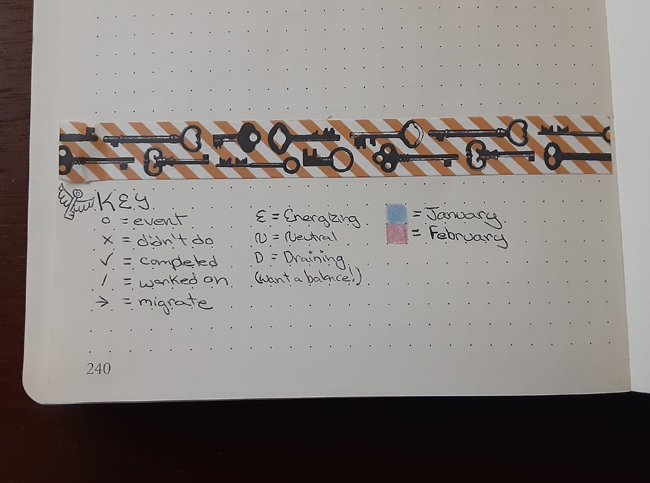 KEY
o = event
x = didn't do
✓ = completed
/ = worked on
→ = migrate
E = Energizing
N = Neutral
D = Draining
(want a balance!)
= January
= February
240